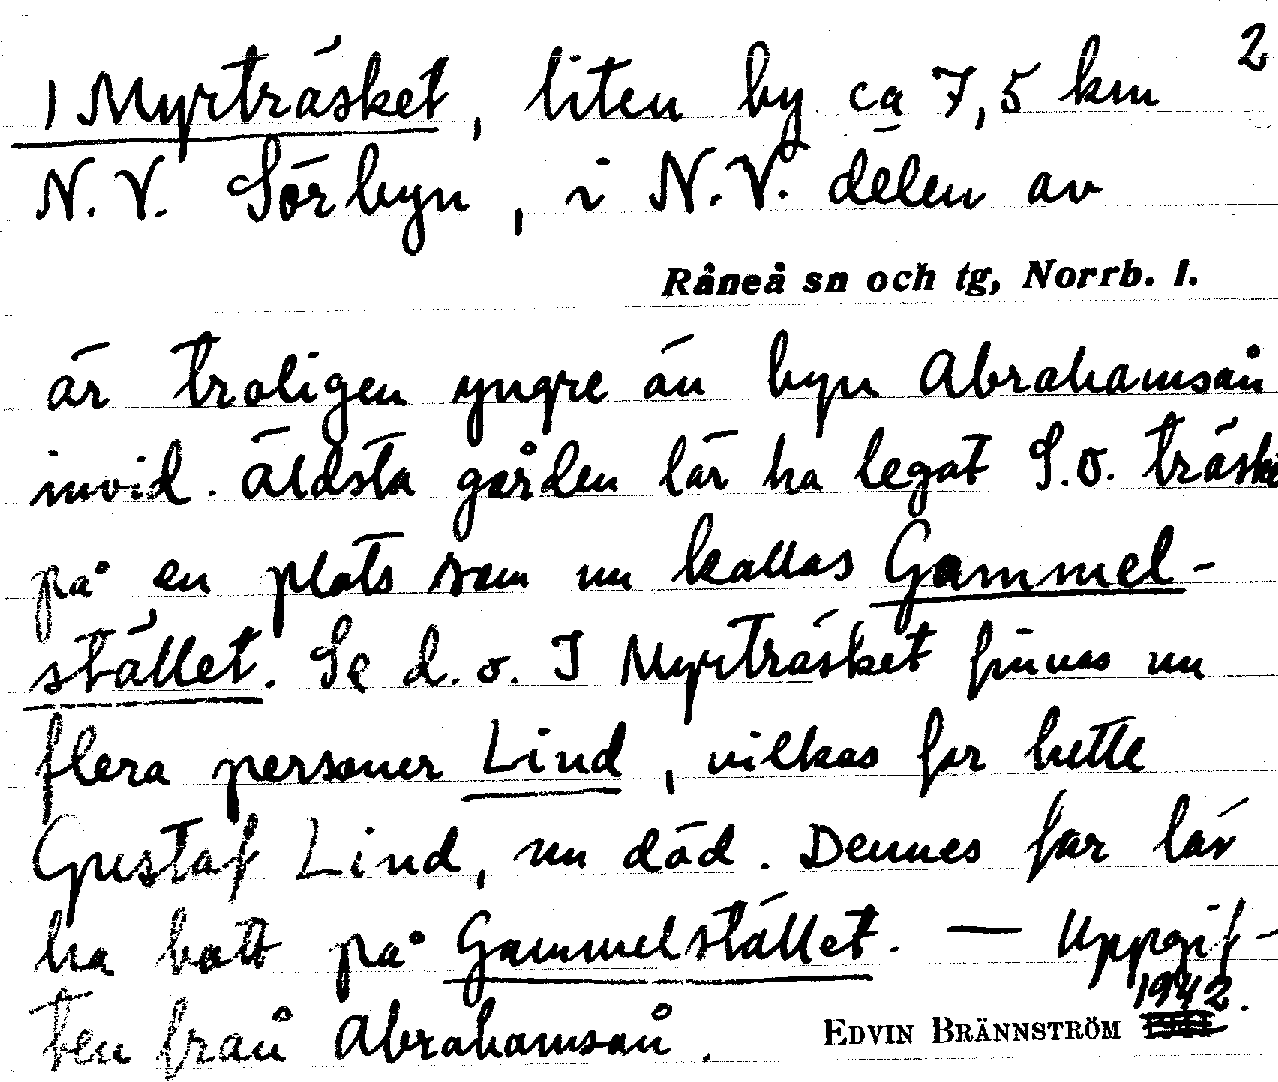 2
1 Myrträsket, liten by ca 7,5 km
N.V. Sörbyn, i N.V. delen av
Råneå sn och tg, Norrb. l.
är troligen yngre än byn Abrahamsån
invid. Äldsta gården lär ha legat S.O. träske
på en plats som nu kallas Gammel-
stället. Se d.o. I Myrträsket finnas nu
flera personer Lind, vilkas far hette
Gustaf Lind, nu död. Dennes far lär
ha bott på Gammelstället. — Uppgif-
ten från Abrahamsån.
1942.
EDVIN BRÄNNSTRÖM